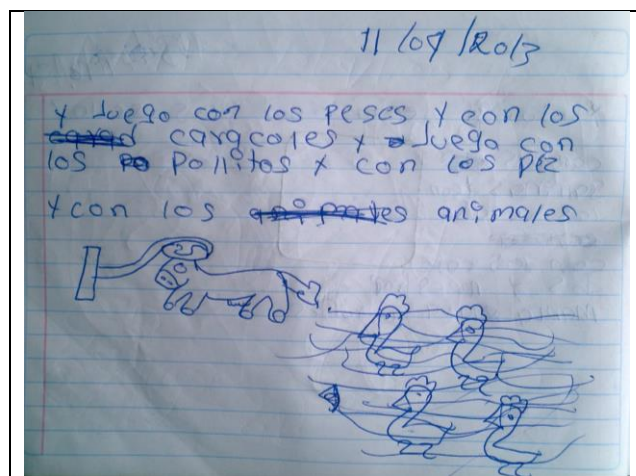 11/07/2013
y Juego con los peses y con los
caracoles y Juego con
los pollitos y con los pez
y con los animales